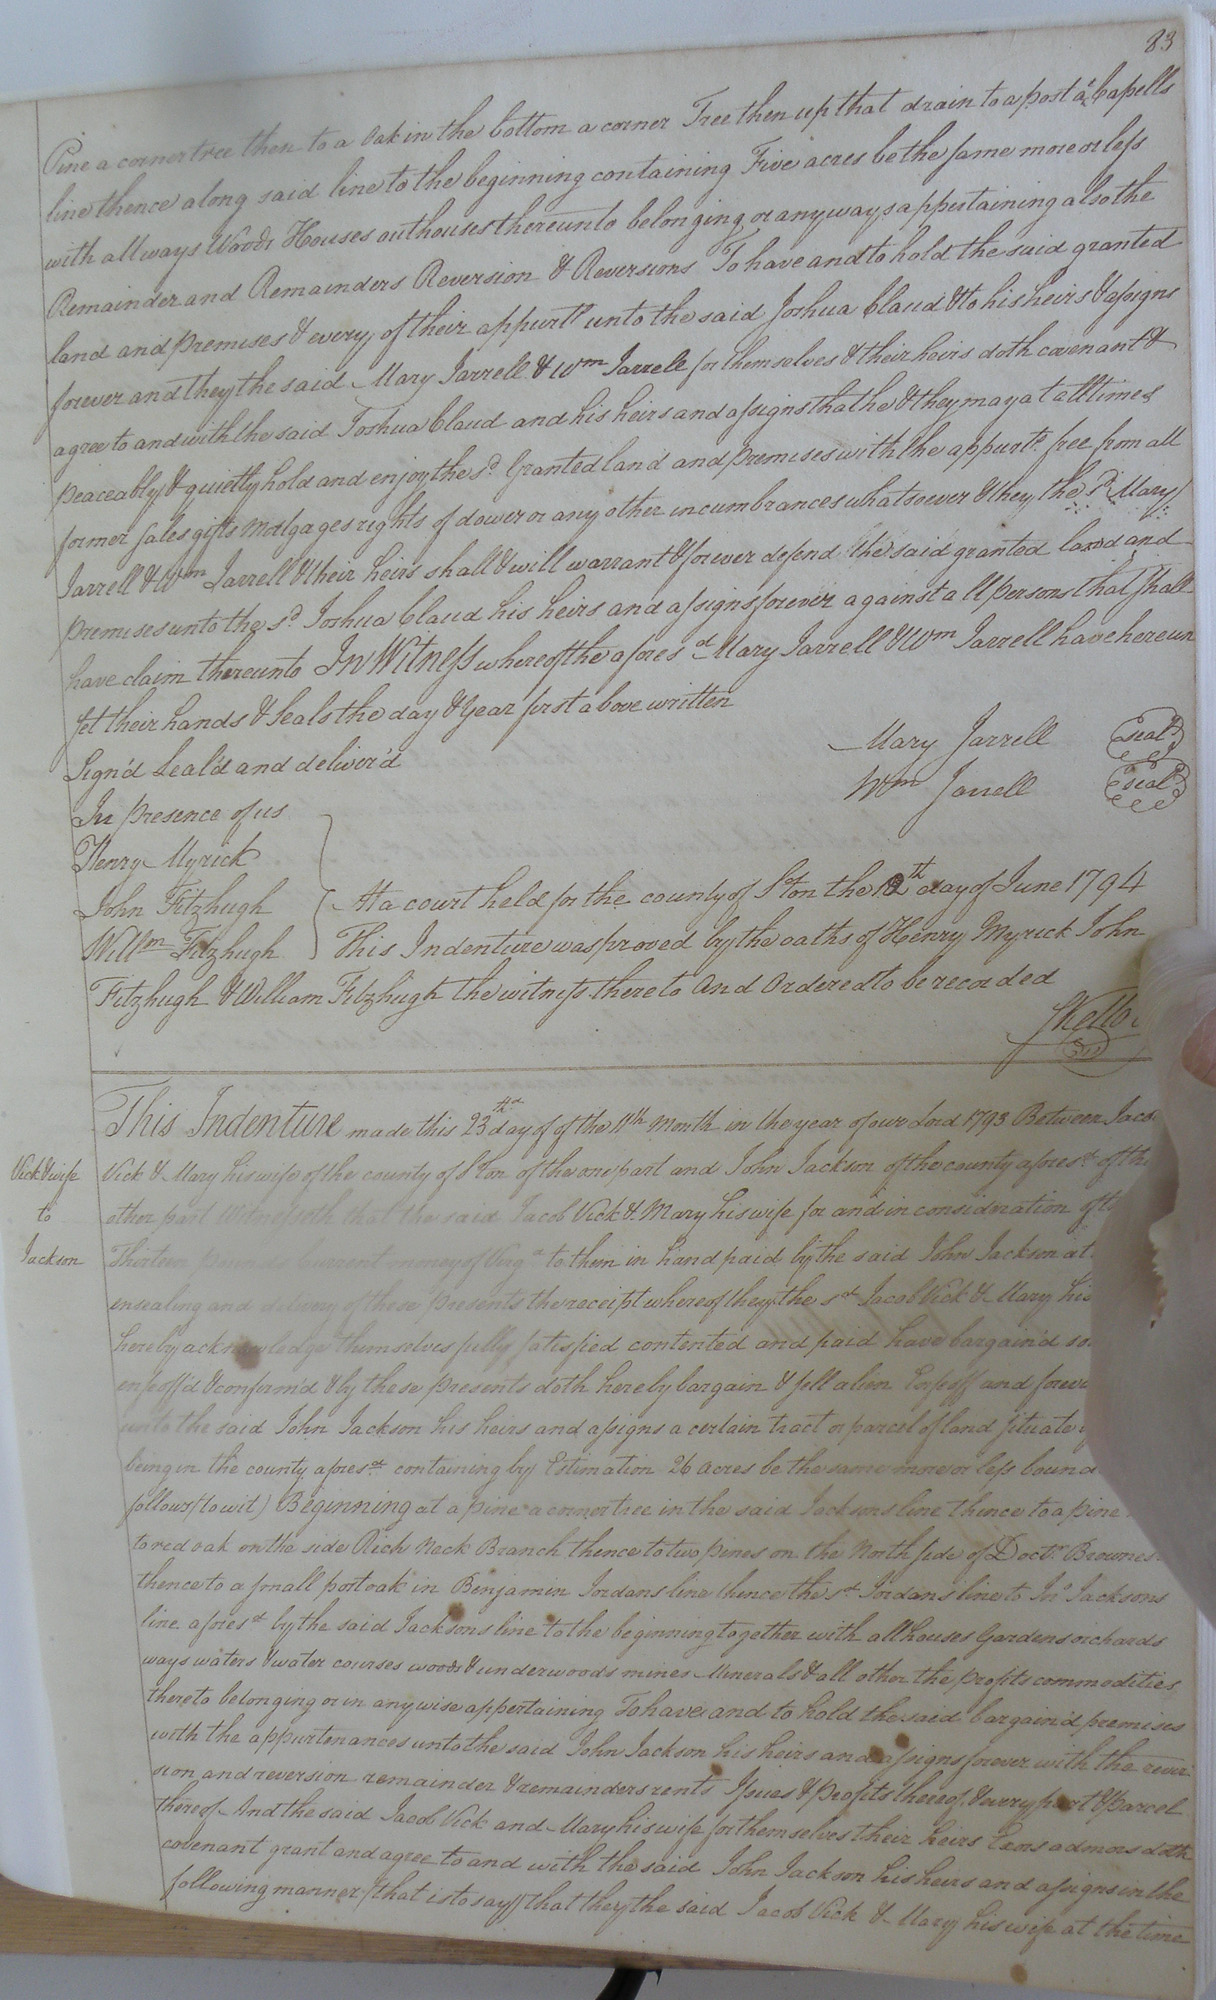 83
Pine a corner tree then to a Oak in the bottom a corner Tree then up that drain to a post at Capells
line thence along said line to the beginning containing Five acres be the same more or less
with all ways Woods Houses outhouses thereunto belonging or anyways appertaining also the
Remainder and Remainders Reversion & Reversions To have and to hold the said granted
land and premises & every of their appurts unto the said Joshua Claud & to his heirs & assigns
forever and they the said Mary Jarrell & Wm Jarrell for themselves & their heirs doth covenant &
agree to and with the said Joshua Claud and his heirs and assigns that he & they may at all times
peaceably & quietly hold and enjoy the sd Granted land and premises with the appurts free from all
former sales gifts Mortgages rights of dower or any other incumbrances whatsoever & they the sd Mary
Jarrell & Wm Jarrell & their heirs shall & will warrant & forever defend the said granted land and
premises unto the sd Joshua Claud his heirs and assigns forever against all persons that shall
have claim thereunto In Witness whereof the aforesd Mary Jarrell & Wm Jarrell have hereun
set their hands & seals the day & year first above written
Mary Jarrell Seal
Sign'd Seal'd and deliver'd
Wm Jarrell seal
In presence of us
Henry Myrick
John Fitzhugh At a court held for the county of Sºton the 12th day of June 1794
Willm Fitzhugh This Indenture was proved by the oaths of Henry Myrick John
Fitzhugh & William Fitzhugh the witness thereto And Ordered to be recorded
This Indenture made this 23th day of of the 11th Month in the year of our Lord 1793 Between Jaco
Vick & wife
to
Jackson
Vick & Mary his wife of the county of Sºton of the one part and John Jackson of the county aforesd of th
other part Witnesseth that the said Jacob Vick & Mary his wife for and in consideration of
Thirteen pounds Current money of Virga to them in hand paid by the said John Jackson at
ensealing and delivery of these Presents the receipt whereof they the sd Jacob Vick & Mary his
hereby acknowledge themselves fully satisfied contented and paid have bargain'd so
enfeoff'd & confirm'd & by these presents doth hereby bargain & sell alien Enfeoff and forev
unto the said John Jackson his heirs and assigns a certain tract or parcel of land situate
being in the county aforesd containing by Estimation 26 acres be the same more or less bound
follows (to wit) Beginning at a pine a corner tree in the said Jacksons line thence to a pine
to red oak on the side Rich Neck Branch thence to two pines on the North side of Doctr Brownes
thence to a small port oak in Benjamin Jordans line thence the sd Jordans line to Jno Jacksons
line aforesd by the said Jacksons line to the beginning together with all houses Gardens orchards
ways waters & water courses woods & underwoods mines Minerals & all other the profits commodities
thereto belonging or in any wise appertaining To have and to hold the said bargain'd premises
with the appurtenances unto the said John Jackson his heirs and assigns forever with the rever
sion and reversion remainder & remainders rents Issues & Profits thereof & every part & Parcel
thereof And the said Jacob Vick and Mary his wife for themselves their heirs Exors admors doth
covenant grant and agree to and with the said John Jackson his heirs and assigns in the
following manner (that is to say) that they the said Jacob Vick & Mary his wife at the time